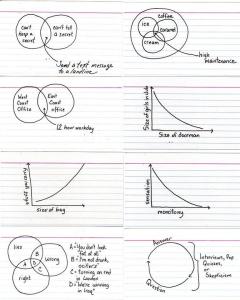 can't
keep a
secret
can't tell
a secret
Send a text message
to a landline
coffee
ice
caramel
cream
high
maintenance
West
Coast
Office
East
Coast
office
12 hour workday
Size of girls inside
Size of doorman
stuff you carry
size of bag
sensation
monotony
lies
wrong
right
A
B
C
D
A = "You don't look
fat at all"
B = "I'm not drunk,
ocifers"
C = Turning on red
in London
D = "We're winning
in Iraq"
Answer
Question
Interviews, Pop
Quizzes,
or
Skepticism